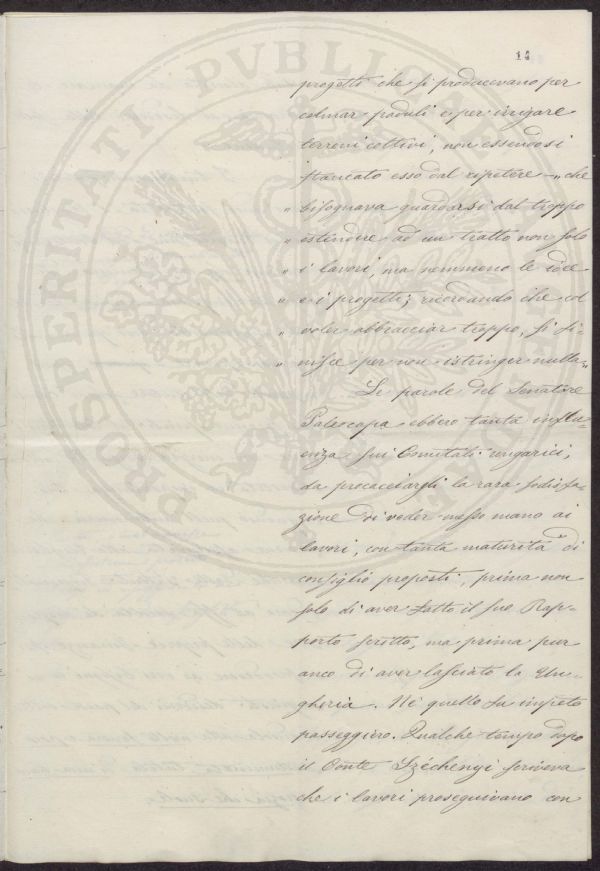 14
progetti che si producevano per
colmar paduli e per irrigare
terreni coltivi, non essendosi
stancato esso dal ripetere „ che
„ bisognava guardarsi dal troppo
„ estendere ad un tratto non solo
„ i lavori, ma nemmeno le idee
„ e i progetti; ricordando che col
„ voler abbracciar troppo, si fi-
„ nisce per non istringer nulla „
Le parole del Senatore
Paleocapa ebbero tanta influ-
enza sui Comitati ungarici,
da procacciargli la rara sodisfa-
zione di veder messo mano ai
lavori, con tanta maturità di
consiglio proposti, prima non
solo di aver fatto il suo Rap-
porto scritto, ma prima pur
anco di aver lasciato la Un-
gheria. Nè quello fu impeto
passeggiero. Qualche tempo dopo
il Conte Széchenyi scriveva
che i lavori proseguivano con
PROSPERITATI PVBLICAE